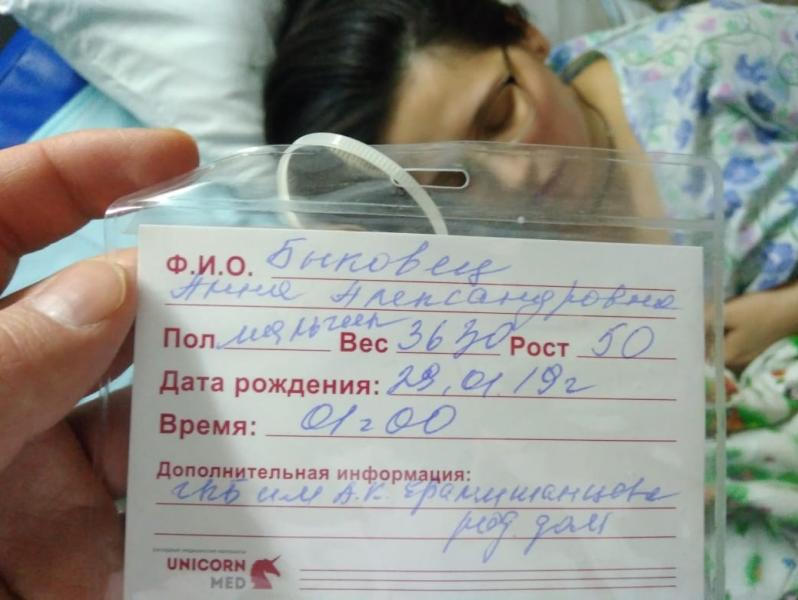 Ф.И.О. Быковец
Анна Александровна
Пол мальчик Вес 3630 Рост 50
Дата рождения: 29.01.19г
Время: 01г00
Дополнительная информация:
ГКБ им А.К. Ерамишанцева
род. дом
UNICORN
MED